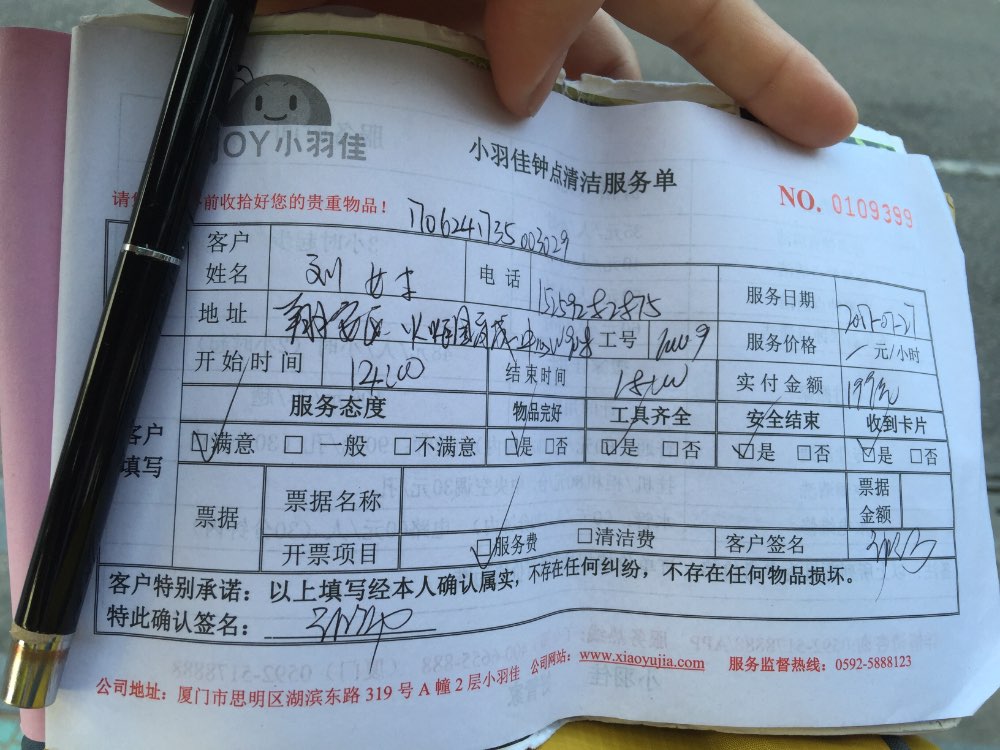 JOY小羽佳
小羽佳钟点清洁服务单
NO. 0109399
前收拾好您的贵重物品！
170624173500 3029
客户姓名 刘女士 电话 服务日期
地址 工号 服务价格 元/小时
开始时间 结束时间 实付金额
服务态度 物品完好 工具齐全 安全结束 收到卡片
客户填写 □满意 □一般 □不满意 □是 □否 □是 □否 □是 □否 □是 □否
票据 票据名称 票据金额
开票项目 □服务费 □清洁费 客户签名
客户特别承诺：以上填写经本人确认属实，不存在任何纠纷，不存在任何物品损坏。
特此确认签名：
公司地址：厦门市思明区湖滨东路 319 号 A 幢 2 层小羽佳 公司网站：www.xiaoyujia.com 服务监督热线：0592-5888123